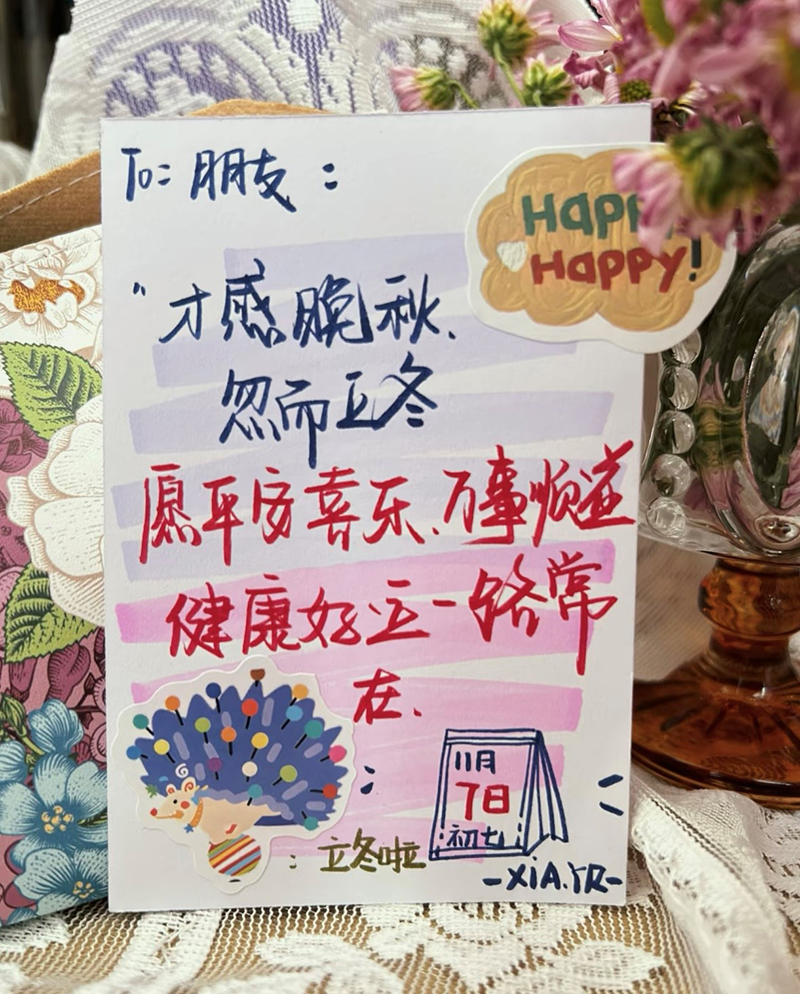 To: 朋友:
Happy
Happy!
"才感晚秋、
忽而立冬
愿平安喜乐、万事顺益
健康好运一路常
在.
11月
7日
初七
: 立冬啦
-XiA.YR-